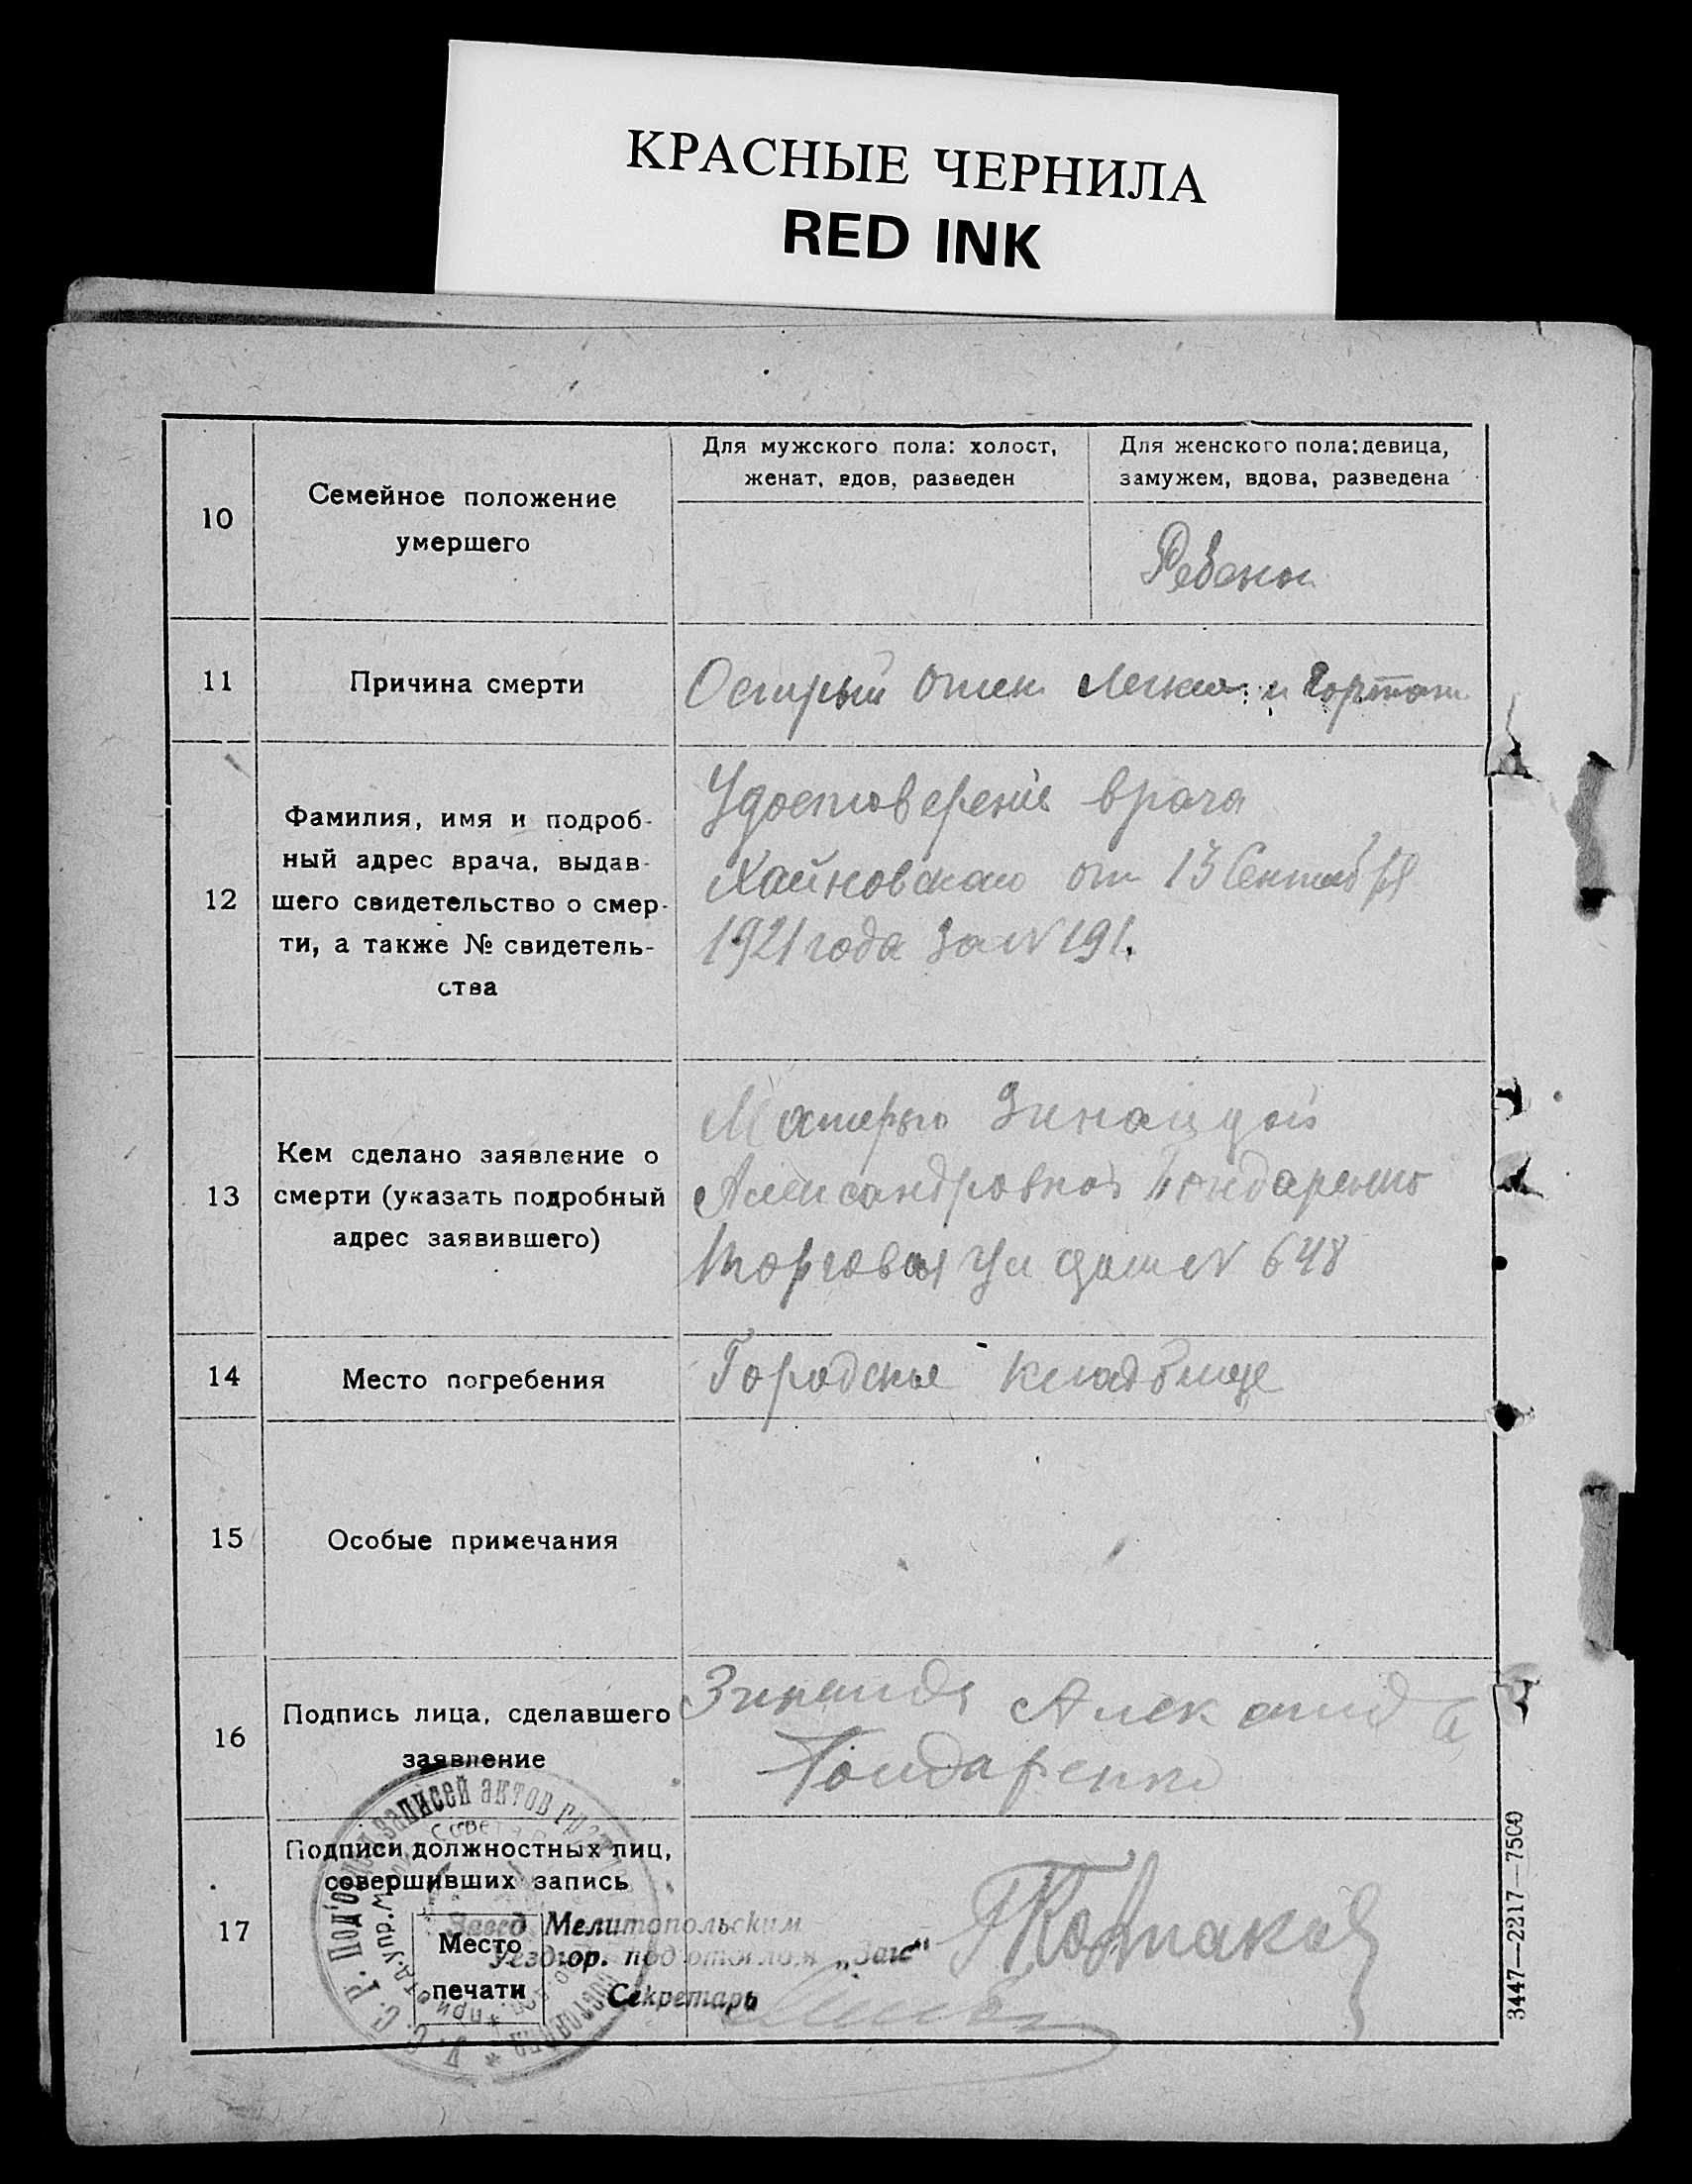 КРАСНЫЕ ЧЕРНИЛА
RED INK
10
Семейное положение
умершего
Для мужского пола: холост,
женат, вдов, разведен
Для женского пола: девица,
замужем, вдова, разведена
Ребенок
11
Причина смерти
Острый отек легких и гортани
12
Фамилия, имя и подроб-
ный адрес врача, выдав-
шего свидетельство о смер-
ти, а также № свидетель-
ства
Удостоверение врача
от 13 Сентября
1921 года за N 191.
13
Кем сделано заявление о
смерти (указать подробный
адрес заявившего)
Матерью Зинаидой
Александровной Бондаренко
Торговая ул дом N 648
14
Место погребения
Городское кладбище
15
Особые примечания
16
Подпись лица, сделавшего
заявление
Зинаида Александ
Бондаренко
17
Подписи должностных лиц,
совершивших запись
Место
печати
Завед Мелитопольским
Уездгор. подотделом „Загс“
Секретарь
У. С. С. Р. Под'отдел записей актов
3447—2217—7500